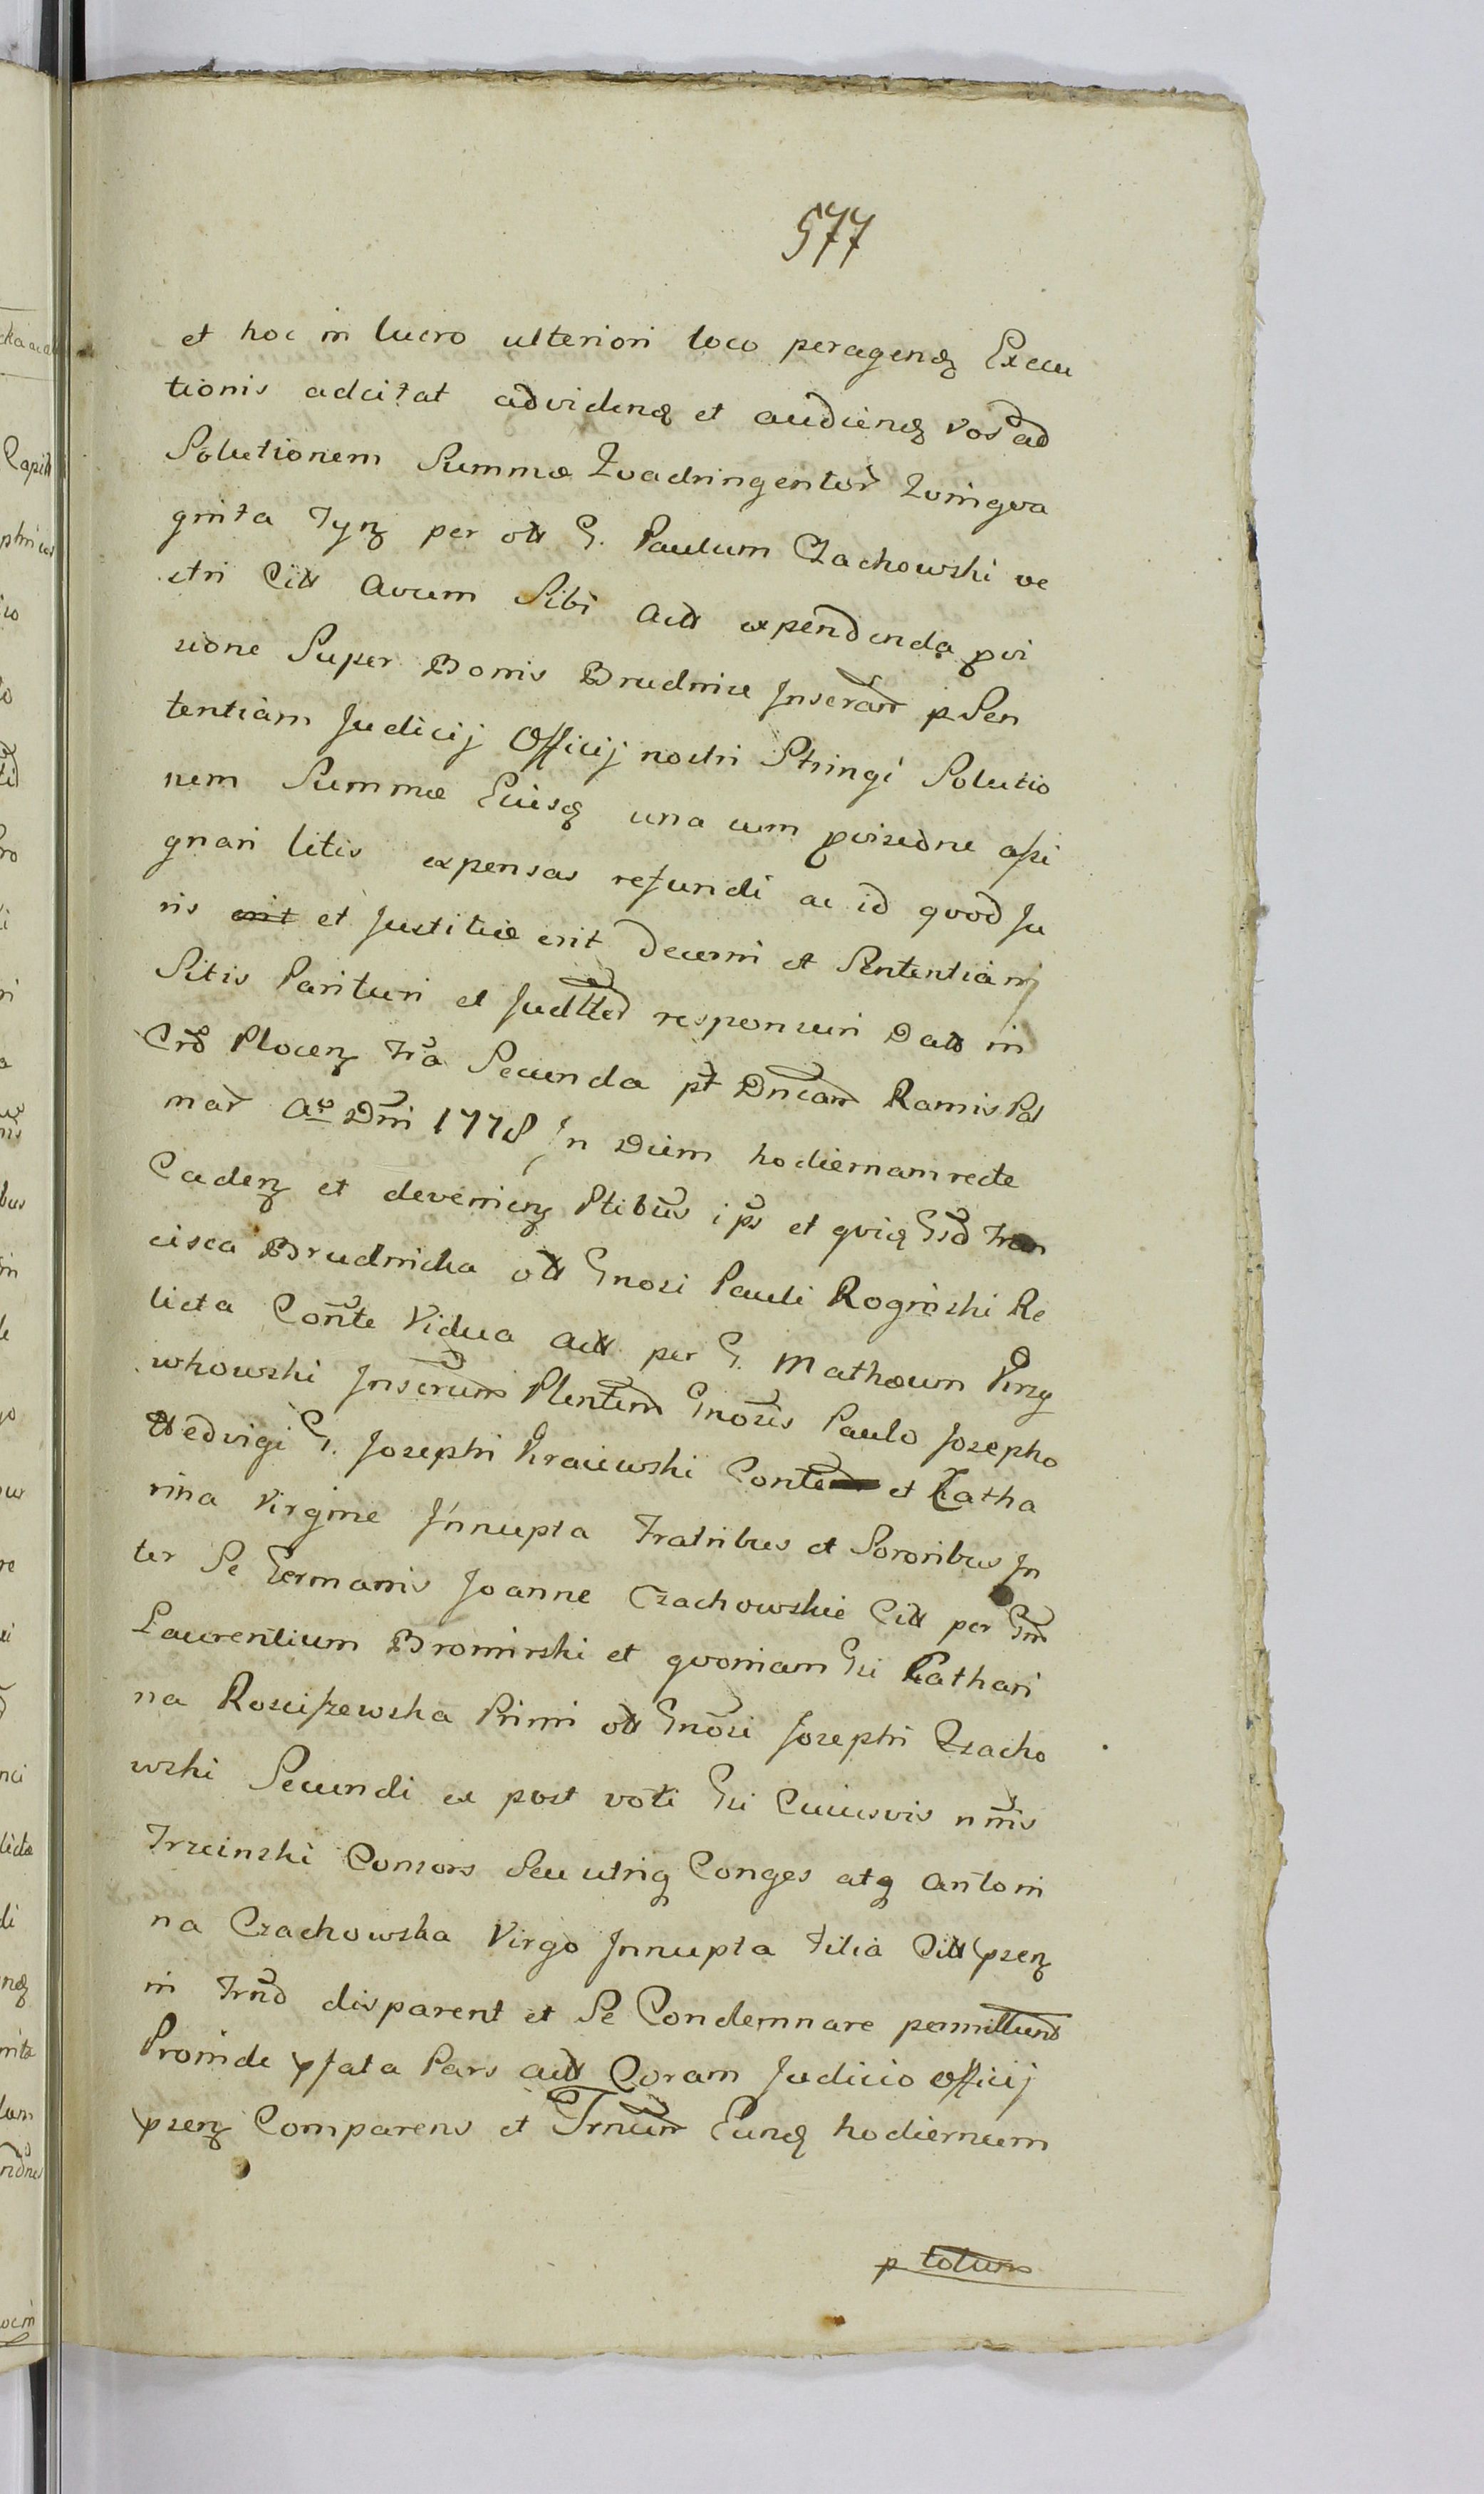 577
et hoc in lucro ulteriori loco peragenɖ Execu
tionis adcitat advidenɖ et audienɖ vos ad
Solutionem Summæ Qvadringentor̃ Qvinqva
ginta Tynʒ per olt G. Paulum Czachowski ve
stri Citt Avum Sibi Actt expendenda pvi
sione Super Bonis Brudnice Inseran̄ p Sen
tentiam Judicij Officij nostri Stringi Solutio
nem Summæ Eiusɖ una cum pvisione assi
gnari litis expensas refundi ac id qvod Ju
ris erit et Justitiæ erit decerni et Sententiam
Sitis Parituri et Judlted responsuri Datt in
Crõ Plocenʒ Fr̃a Secunda pt̃ Dñcam Ramis Pal
mar̃ Aᵒ Dñi 1778 In Diem hodiernam recte
Cadenʒ et devenienʒ Ptibus ip̃s et qviɖ Gsd Fran
cisca Brudnicka olt Gnosi Pauli Roginski Re
licta Coñte Vidua Actt per G. Mathæum
wkowski Inserum̄ Plentem Gnosis Paulo Josepho
Hedvigi G. Josephi Kraiewski Conte et Katha
rina Virgine Innupta Fratribus et Sororibus In
ter Se Germanis Joanne Czachowskie Citt per Gm̃
Laurentium Bromirski et qvoniam Gsi Cathari
na Rosciszewska Primi olt Gnõsi Josephi Czacho
wski Secundi ex post voti Gsi Cuiusvis nm̃is
Trzcinski Consors Seu utriɖ Conges atɖ Antoni
na Czachowska Virgo Innupta Filia Citt psenʒ
in Trñd disparent et Se Condemnare permittunt
Proinde pfata Pars Actt Coram Judicio Officij
psenʒ Comparens et Trñum Eunɖ hodiernum
p totum